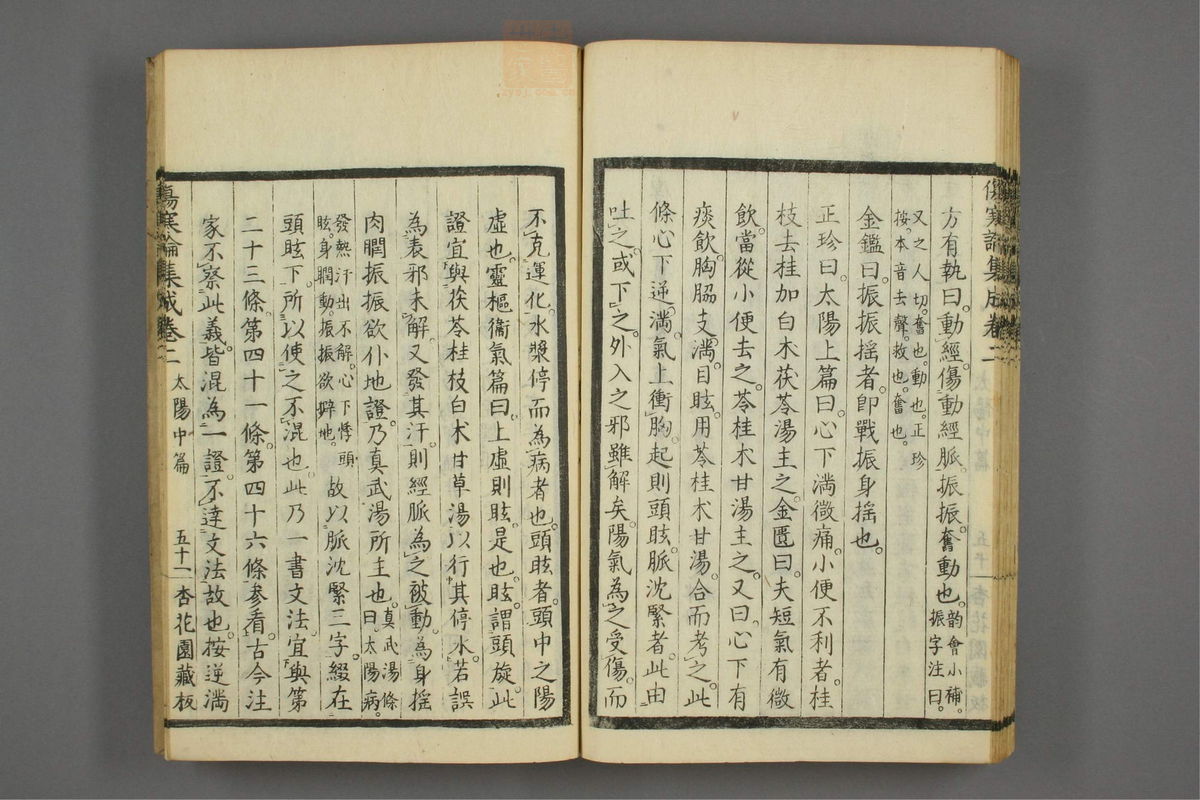 傷寒論集成卷二
方有執曰。動經。傷動經脈。振振。奮動也。韵會小補。振字注曰。
又之人切。奮也。動也。正珍按。本音去聲。救也。奮也。
金鑑曰。振振搖者。卽戰振身搖也。
正珍曰。太陽上篇曰。心下満微痛。小便不利者。桂
枝去桂加白朮茯苓湯主之。金匱曰。夫短氣有微
飲。當從小便去之。苓桂朮甘湯主之。又曰。心下有
痰飲。胸脇支満。目眩。用苓桂朮甘湯。合而考之。此
條心下逆満。氣上衝胸。起則頭眩。脈沈緊者。此由
吐之。或下之。外入之邪雖解矣。陽氣為之受傷。而
不克運化。水漿停而為病者也。頭眩者。頭中之陽
虛也。靈樞衞氣篇曰。上虛則眩是也。眩。謂頭旋。此
證宜與茯苓桂枝白朮甘草湯以行其停水。若誤
為表邪未解。又發其汗。則經脈為之被動。為身搖
肉瞤振振欲仆地證。乃真武湯所主也。真武湯條曰。太陽病。
發熱汗出不解。心下悸。頭眩。身瞤動。振振欲擗地。故以脈沈緊三字。綴在
頭眩下。所以使之不混也。此乃一書文法。宜與第
二十三條。第四十一條。第四十六條參看。古今注
家不察此義。皆混為一證。不達文法故也。按逆満
傷寒論集成卷二 太陽中篇 五十二 杏花園藏板